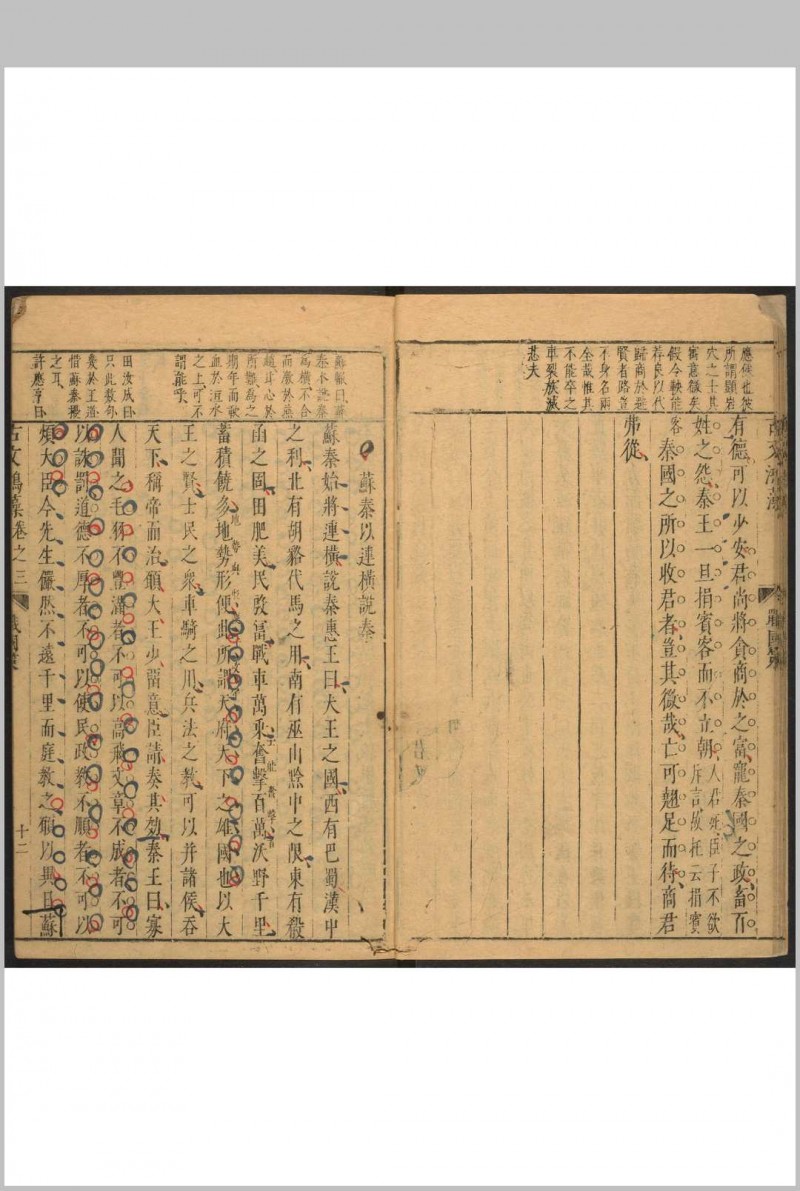 應侯也彼
所謂顯岩
穴之士其
審意緩矣
假令鞅能
荐良以代
歸商於避
賢者路豈
不身名兩
全哉惟其
不能卒之
車裂族滅
悲夫
有德可以少安君尚將貪商於之富寵秦國之政畜百
姓之怨秦王一旦捐賓客而不立朝人君死臣子不欲
斥言故托云捐賓
客
秦國之所以收君者豈其微哉亡可翹足而待商君
弗從
蘇轍曰蘇
秦本說秦
為橫不合
而激於燕
趙甘心於
所難為之
期年而歃
血於洹水
之上可不
謂能乎
田汝成曰
只此數句
幾於王道
惜蘇秦擾
之耳
許應享曰
蘇秦以連橫說秦
蘇秦始將連橫說秦惠王曰大王之國西有巴蜀漢中
之利北有胡貉代馬之用南有巫山黔中之限東有殽
函之固田肥美民殷富戰車萬乘奮擊百萬沃野千里
蓄積饒多地勢形便此所謂天府天下之雄國也以大
王之賢士民之衆車騎之用兵法之教可以并諸侯吞
天下稱帝而治願大王少留意臣請奏其效秦王曰寡
人聞之毛羽不豐滿者不可以高飛文章不成者不可
以誅罰道德不厚者不可以使民政教不順者不可以
煩大臣今先生儼然不遠千里而庭教之願以異日蘇
古文鴻藻 卷之三 戰國策 十二